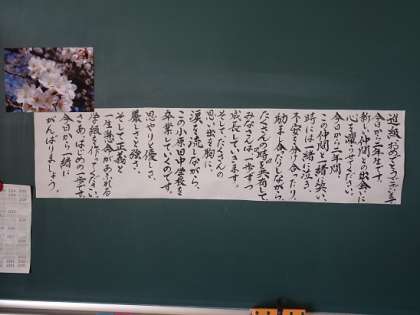 進級おめでとうございます
今日から二年生です。
新しい仲間との出会いに
心を躍らせてください。
今日から一年間、
この仲間と一緒に笑い、
時には一緒に泣き、
不安を分け合ったり、
助け合ったりしながら、
たくさんの時を共有して
みなさんは一歩ずつ
成長していきます。
そしてたくさんの
思い出を胸に、
涙を流しながら、
この小原田中学校を
卒業していくのです。
思いやりと優しさ、
厳しさと強さ、
そして正義と
一生懸命があふれる
学級を作ってください。
さあ、はじめの一歩です。
今日から一緒に
がんばりましょう。